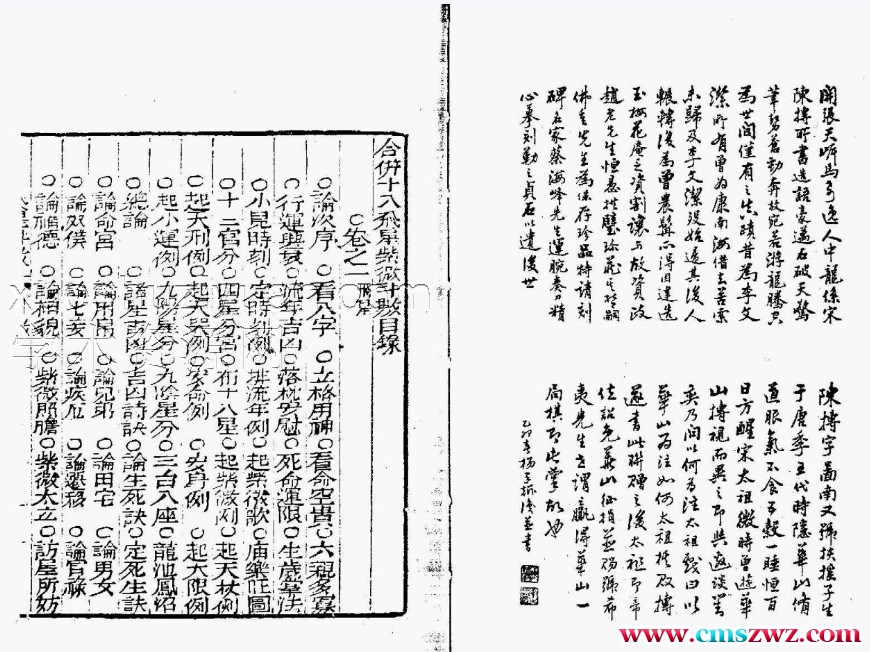 開張天岸馬奇逸人中龍係宋
陳摶所書造語豪邁石破天驚
筆勢蒼勁奔放宛若游龍騰空
為世间僅有之真蹟昔為李文
潔所有曾為康南海借去苦索
未歸及李文潔沒始還其後人
輾轉後為曾農髯所得因遺造
玉梅花庵之資割讓与故資政
趙老先生恒惠
佛重先生為保存珍品特請刻
碑名家蔡海峰先生運腕奏刀精
心摹刻勒之貞石以遺後世
陳摶字圖南又號扶搖子生
于唐季五代時隱華山脩
道服氣不食五穀一睡恒百
日方醒宋太祖微時曾遊華
山摶視而異之即與邀談
奕乃问以何为注太祖戲曰以
華山为注如何太祖敗摶
遂書此聯贈之後太祖即帝
位詔免華山征捐並錫號希
夷先生世謂贏得華山一
局棋即此掌故也
乙卯春楊並書
合併十八飛星紫微斗數目錄
○卷之一 飛星
○論次序 ○看八字 ○立格用神 ○看命空貴 ○六親多寡
○行運興衰 ○流年吉凶 ○落枕安慰 ○死命運限 ○生處草法
○小兒時刻 ○定時刻例 ○排流年例 ○起紫微歌 ○庙樂旺圖
○十二宮分 ○四星分宮 ○布十八星 ○起紫微例 ○起天杖例
○起天刑例 ○起天哭例 ○安命例 ○安身例 ○起大限例
○起小運例 ○九陽星分 ○九陰星分 ○三台八座 ○龍池鳳炤
○總論 ○諸星吉凶 ○吉凶詩訣 ○論生死訣 ○定死生訣
○論命宮 ○論用吊 ○論兄弟 ○論田宅 ○論男女
○論奴僕 ○論七妾 ○論疾厄 ○論遷移 ○論官祿
○論福德 ○論相貌 ○紫微照膽 ○紫微太立 ○訪星所妨
www.cmszwz.com